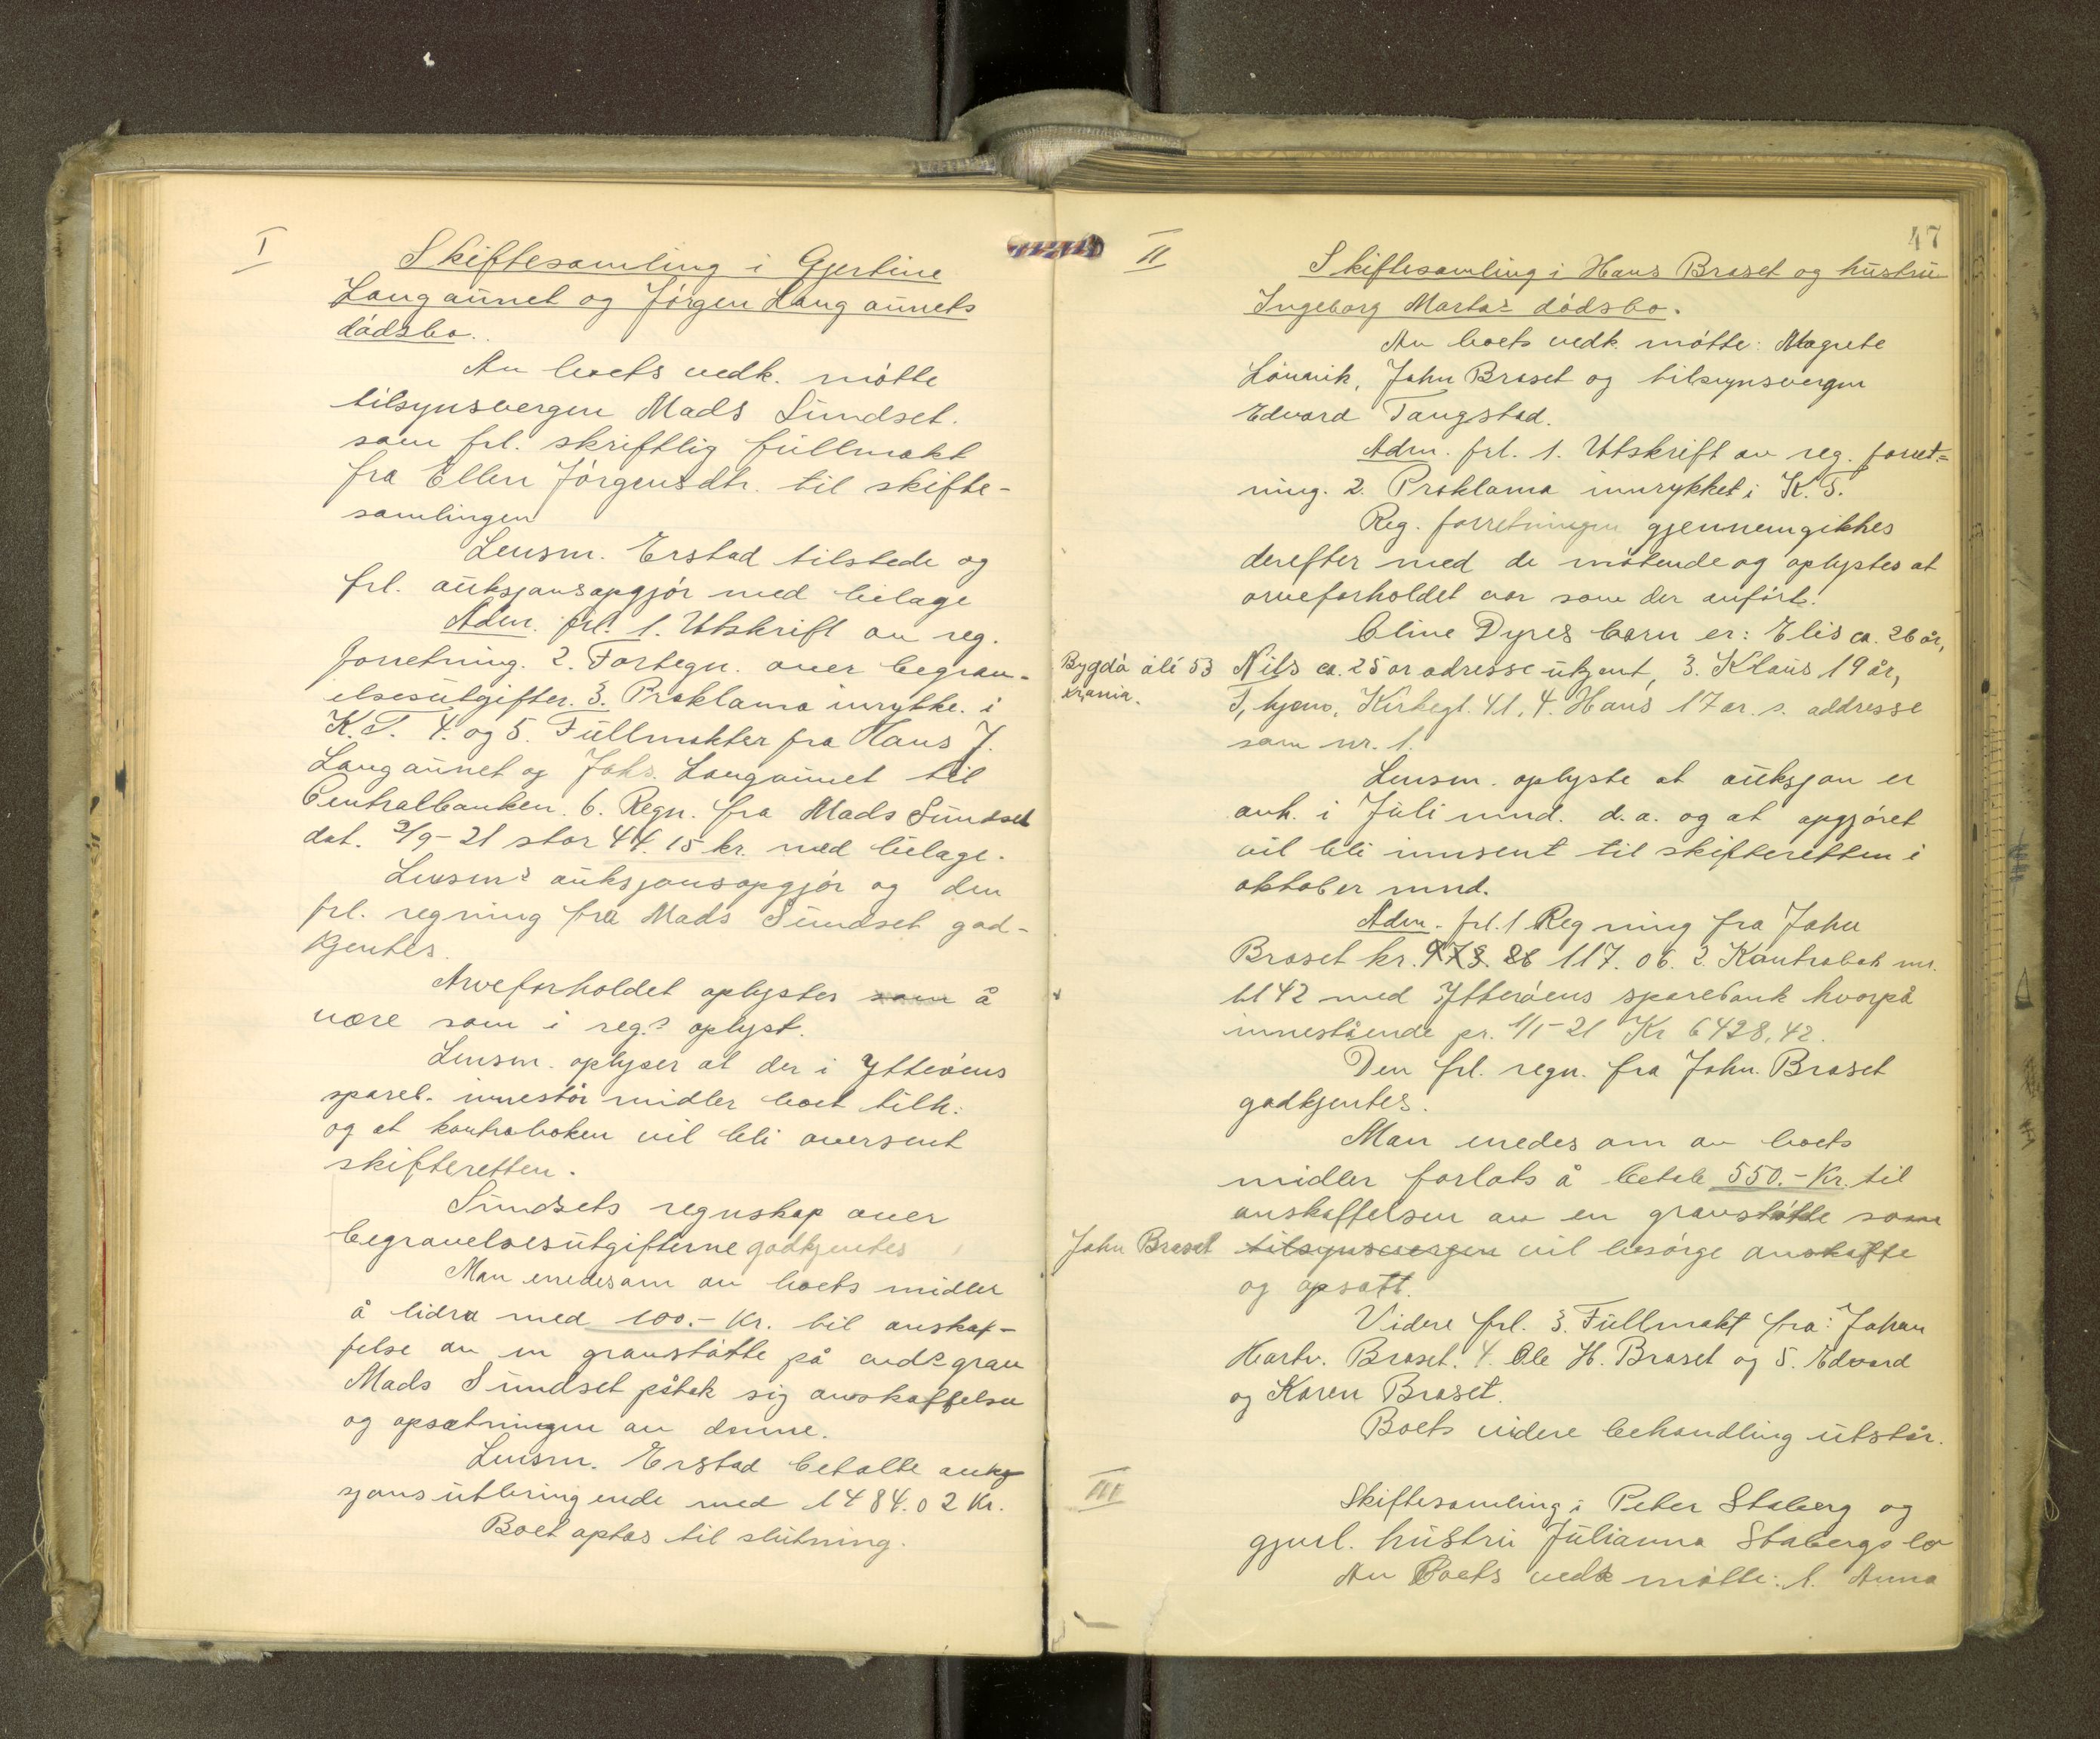 I
Skiftesamling i Gjertine
Langaunet og Jørgen Langaunets
dødsbo.
Av boets vedk. møtte
tilsynsvergen Mads Sundset.
som frl. skriftlig fullmakt
fra Ellen Jørgensdtr. til skifte-
samlingen
Lensm. Erstad tilstede og
frl. auksjonsopgjør med bilage
Adm. frl. 1. Utskrift av reg.
forretning. 2. Fortegn. over begrav-
elsesutgifter. 3. Proklama inrykke. i
K.T. 4. og 5. Fullmakter fra Hans J.
Langaunet og Johs. Langaunet til
Centralbanken. 6. Regn. fra Mads Sundset
dat. 2/9-21 stor 44.15 kr. med bilage.
Lensms auksjonsopgjør og den
frl. regning fra Mads Sundset god-
kjentes.
Arveforholdet oplystes som å
være som i reg.s oplyst.
Lensm. oplyser at der i Ytterøens
spareb. innestår midler boet tilh.
og at kontraboken vil bli oversent
skifteretten.
Sundsets regnskap over
begravelsesutgifterne godkjentes
Man enedes om av boets midler
å bidra med 100.- Kr. til anskaf-
felse av en gravstøtte på avds grav
Mads Sundset påtok sig anskaffelsen
og opsætningen av denne.
Lensm. Erstad betalte auk
sjonsutbringende med 1484.02 Kr.
Boet optas til slutning.
47
II
Skiftesamling i Hans Braset og hustru
Ingeborg Martas dødsbo.
Av boets vedk. møtte: Magrete
Lønvik, John Braset og tilsynsvergen
Edvard Tangstad.
Adm. frl. 1. Utskrift av reg. forret=
ning. 2. Proklama innrykket i K.T.
Reg. forretningen gjennemgikkes
derefter med de møtende og oplystes at
arveforholdet var som der anført.
Oline Dyres barn er: Elis ca. 26 år,
Bygdø alé 53 Nils ca. 25 ar adresse ukjent, 3. Klaus 19 år,
Krania. Kirkegt. 41, 4. Hans 17 ar. s. addresse
som nr. 1.
Lensm. oplyste at auksjon er
avh. i Juli mnd. d.a. og at opgjøret
vil bli innsent til skifteretten i
oktober mnd.
Adm. frl. 1 Regning fra John
Braset kr. 117.06. 2. Kontrabok nr.
1142 med Ytterøens sparebank hvorpå
innestående pr. 1/1-21 Kr 6428,42.
Den frl. regn. fra John Braset
godkjentes.
Man enedes om av boets
midler forlots å betale 550.- Kr. til
anskaffelsen av en gravstøtte som
John Braset tilsynsvergen vil besørge anskaffe
og opsatt.
Videre frl. 3. Fullmakt fra: Johan
Hartv. Braset. 4. Ole H. Braset og 5. Edvard
og Karen Braset.
Boets videre behandling utstår.
III
Skiftesamling i Peter Staberg og
gjenl. hustru Julianna Stabergs bo
Av Boets vedk møtte: 1. Anna